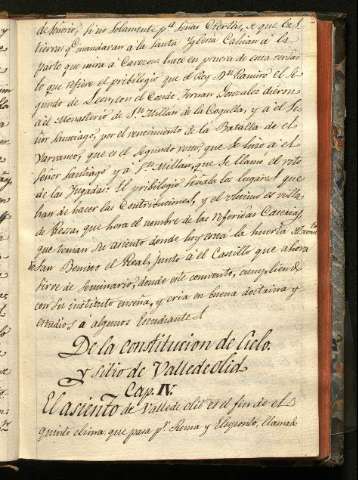 de señorio, si no solamente p.r señas Ciertas, x que las
tierras q.e mandaran a la Santa Yglesia Cahian á la
parte que mira a Carezen hace en prueva de esta verdad
lo que refiere el pribilegio que el Rey D.n Ramiro el se
gundo de Leon, con el Conde Fernan Gonzalez dieron
a el Monasterio de S.n Millan de la Cogolla, y a el Se
ñor Santiago, por el vencimiento de la Batalla de el
Varranco, que es el segundo voto, que se hizo a el
Señor Santiago y a S.n Millan, que se llamo el voto
de las Yugadas: El pribilegio señala los lugares que
han de hacer las Contribuciones, y el
de que hora el nombre de las referidas Carezas,
que tenian su asiento donde hoy está la huerta
San Benito el Real, junto á el Castillo que ahora
sirve de Seminario, donde este convento, cumpliendo
con su instituto enseña, y cria en buena doctrina y
estudios a algunos Estudiantes
De la constitucion de Cielo.
y sitio de Valledeolid
Cap. IV.
El asiento de Valledeolid es el fin de el
quinto clima que pasa p.r Roma y Elesponto, llamad